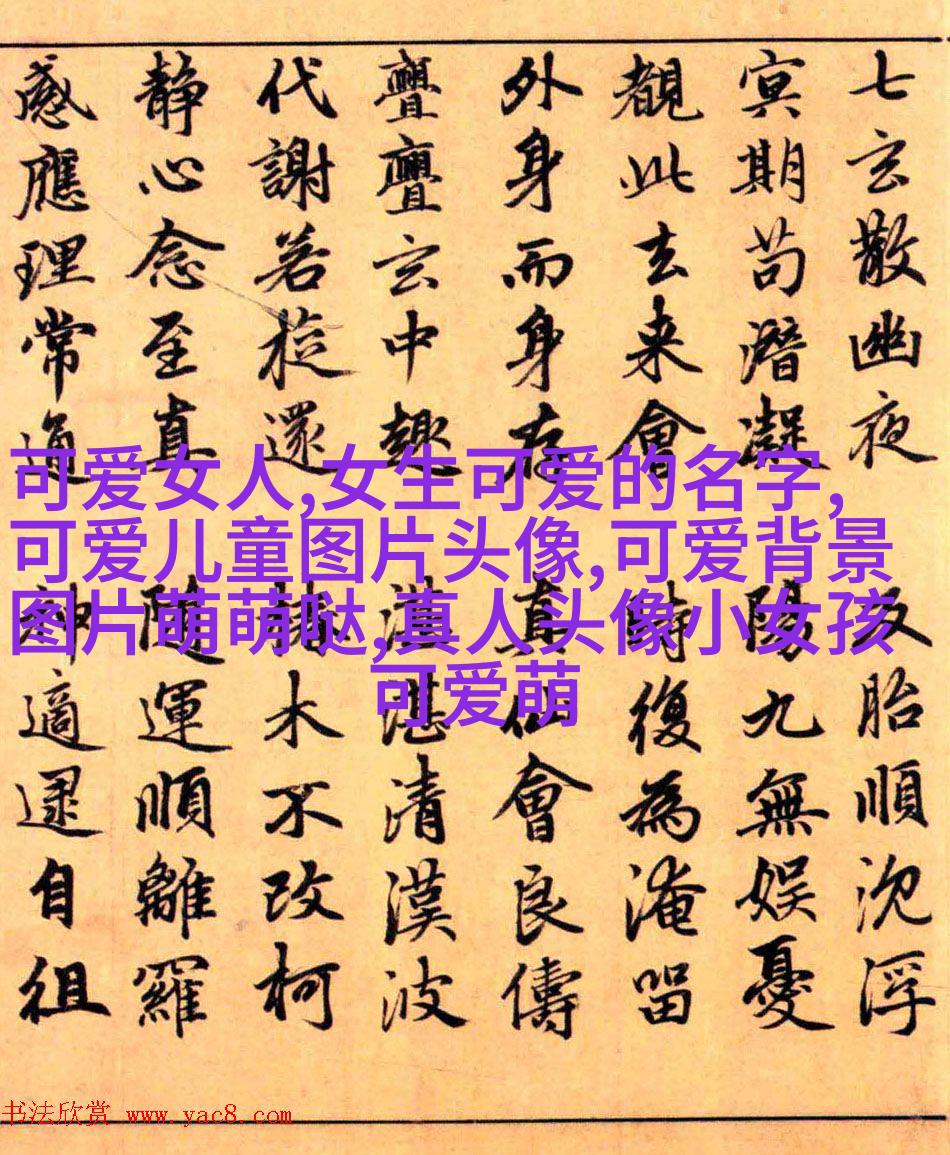 七玄散幽夜 反胎順沈浮
冥期苟潛凝 陽九無娛憂
覩此去来會 時復為淹留
外身而身存 真仙會良儔
亹亹玄中趣 湛湛清漢波
代謝若旋還 木不改柯
静心念至真 隨運順離羅
感應理常通 神適逮自徂
可爱女人,女生可爱的名字,
可爱儿童图片头像,可爱背景
图片萌萌哒,真人头像小女孩
可爱萌
书法欣赏 www.yac8.com